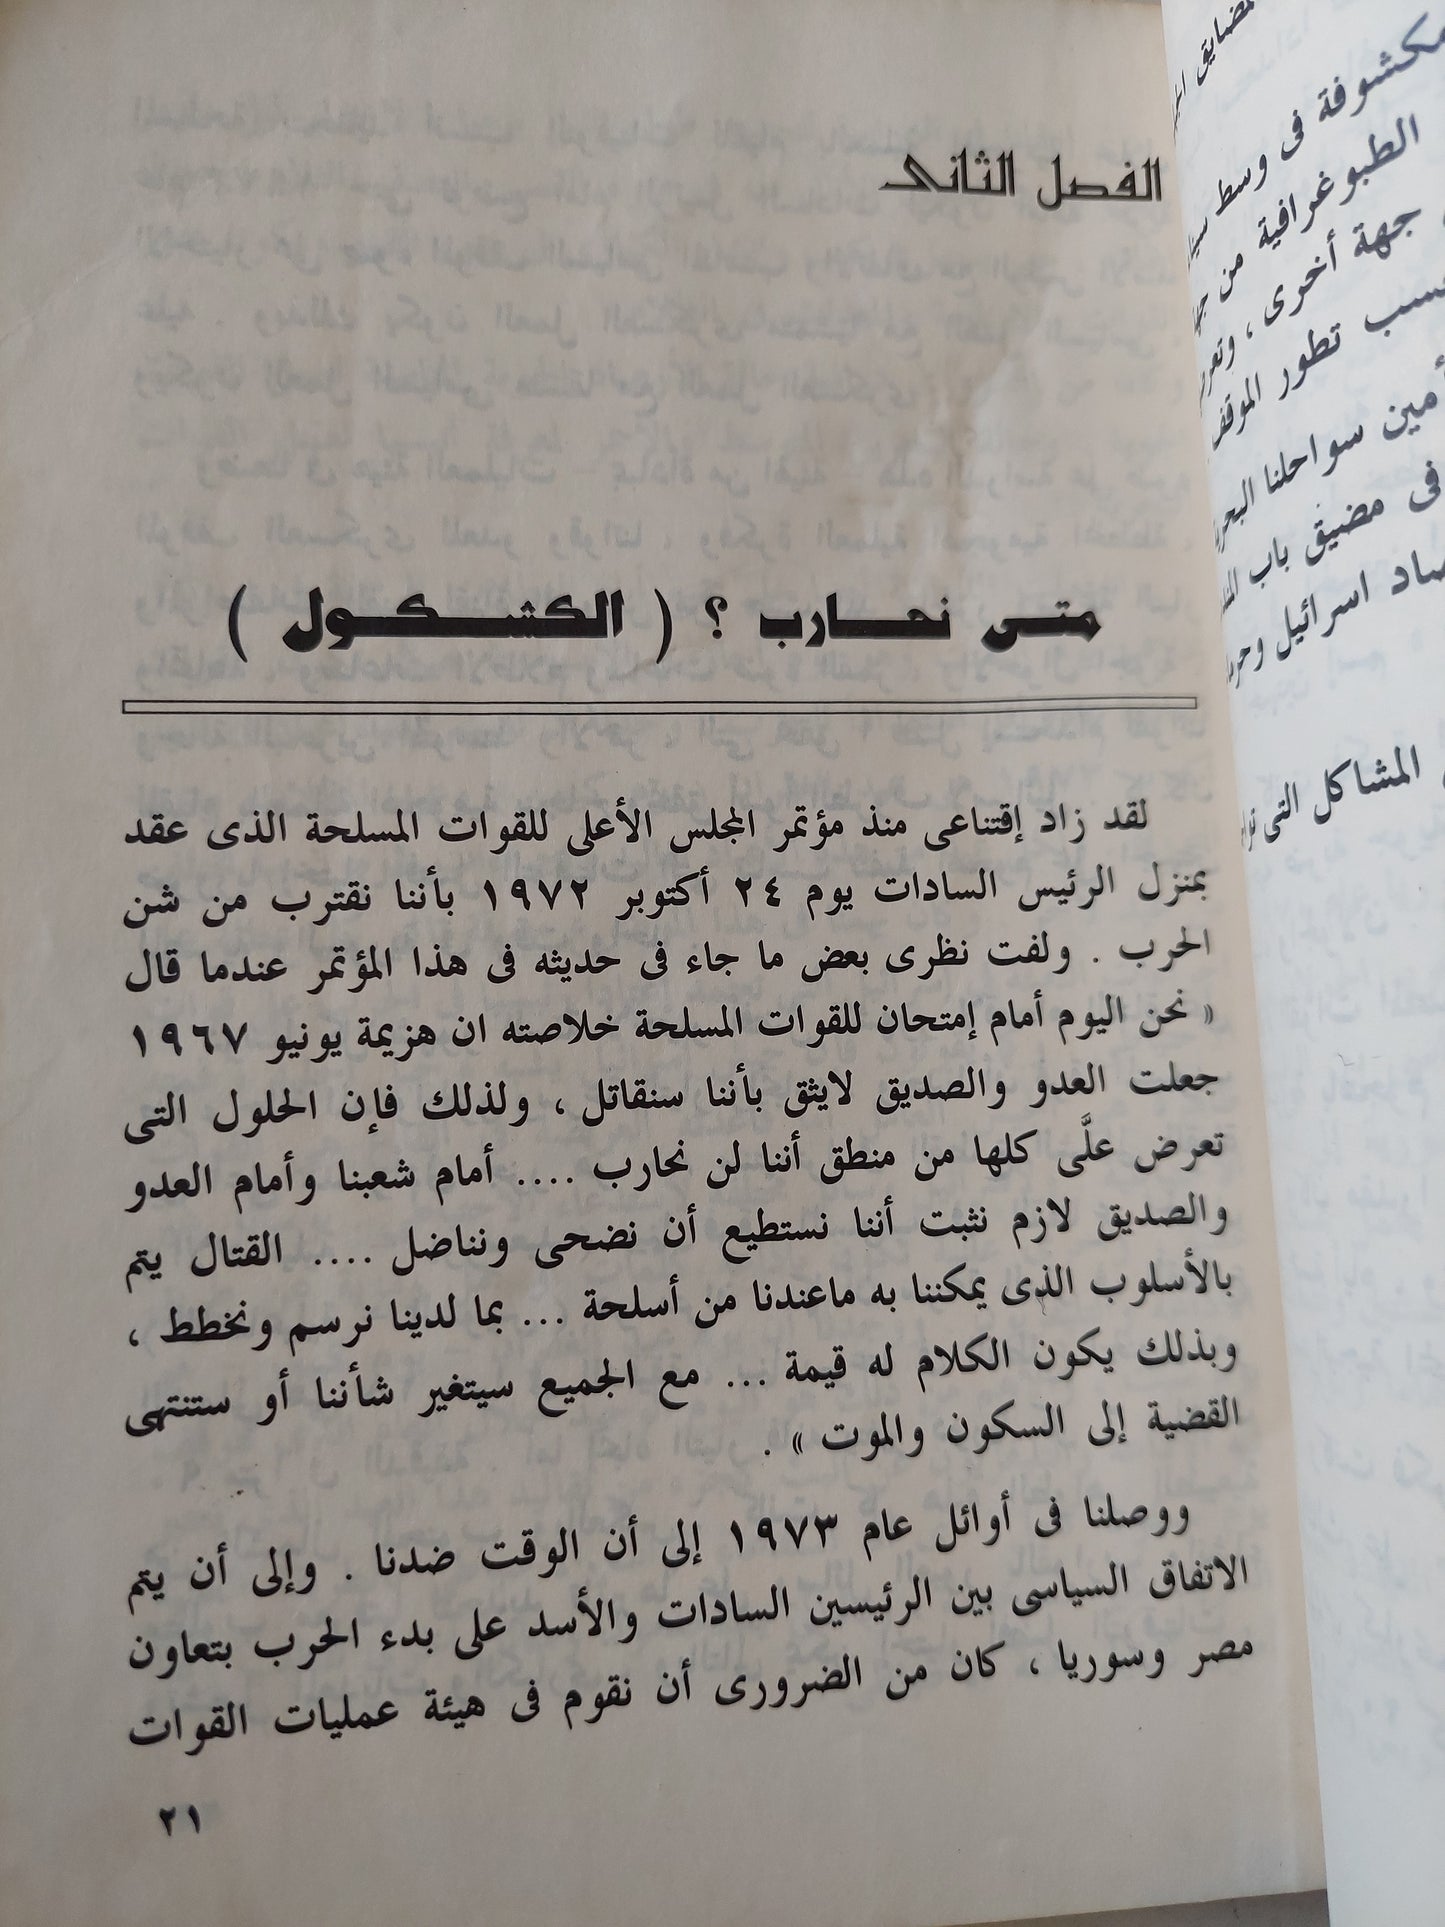 الفصل الثانى
متى نحارب ؟ ( الكشكول )
لقد زاد إقتناعى منذ مؤتمر المجلس الأعلى للقوات المسلحة الذى عقد
بمنزل الرئيس السادات يوم ٢٤ أكتوبر ١٩٧٢ بأننا نقترب من شن
الحرب . ولفت نظرى بعض ما جاء فى حديثه فى هذا المؤتمر عندما قال
« نحن اليوم أمام إمتحان للقوات المسلحة خلاصته ان هزيمة يونيو ١٩٦٧
جعلت العدو والصديق لايثق بأننا سنقاتل ، ولذلك فإن الحلول التى
تعرض علَّى كلها من منطق أننا لن نحارب .... أمام شعبنا وأمام العدو
والصديق لازم نثبت أننا نستطيع أن نضحى ونناضل .... القتال يتم
بالأسلوب الذى يمكننا به ماعندنا من أسلحة ... بما لدينا نرسم ونخطط ،
وبذلك يكون الكلام له قيمة ... مع الجميع سيتغير شأننا أو ستنتهى
القضية إلى السكون والموت » .
ووصلنا فى أوائل عام ١٩٧٣ إلى أن الوقت ضدنا . وإلى أن يتم
الاتفاق السياسى بين الرئيسين السادات والأسد على بدء الحرب بتعاون
مصر وسوريا ، كان من الضرورى أن نقوم فى هيئة عمليات القوات
٢١
مكشوفة فى وسط
الطبوغرافية من
جهة أخرى ،
تطور الموقف
سواحلنا
فى مضيق باب
اسرائيل
المشاكل التى